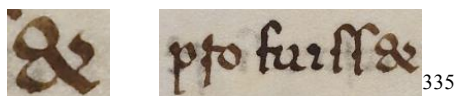 & p̄sto fuiss& 335